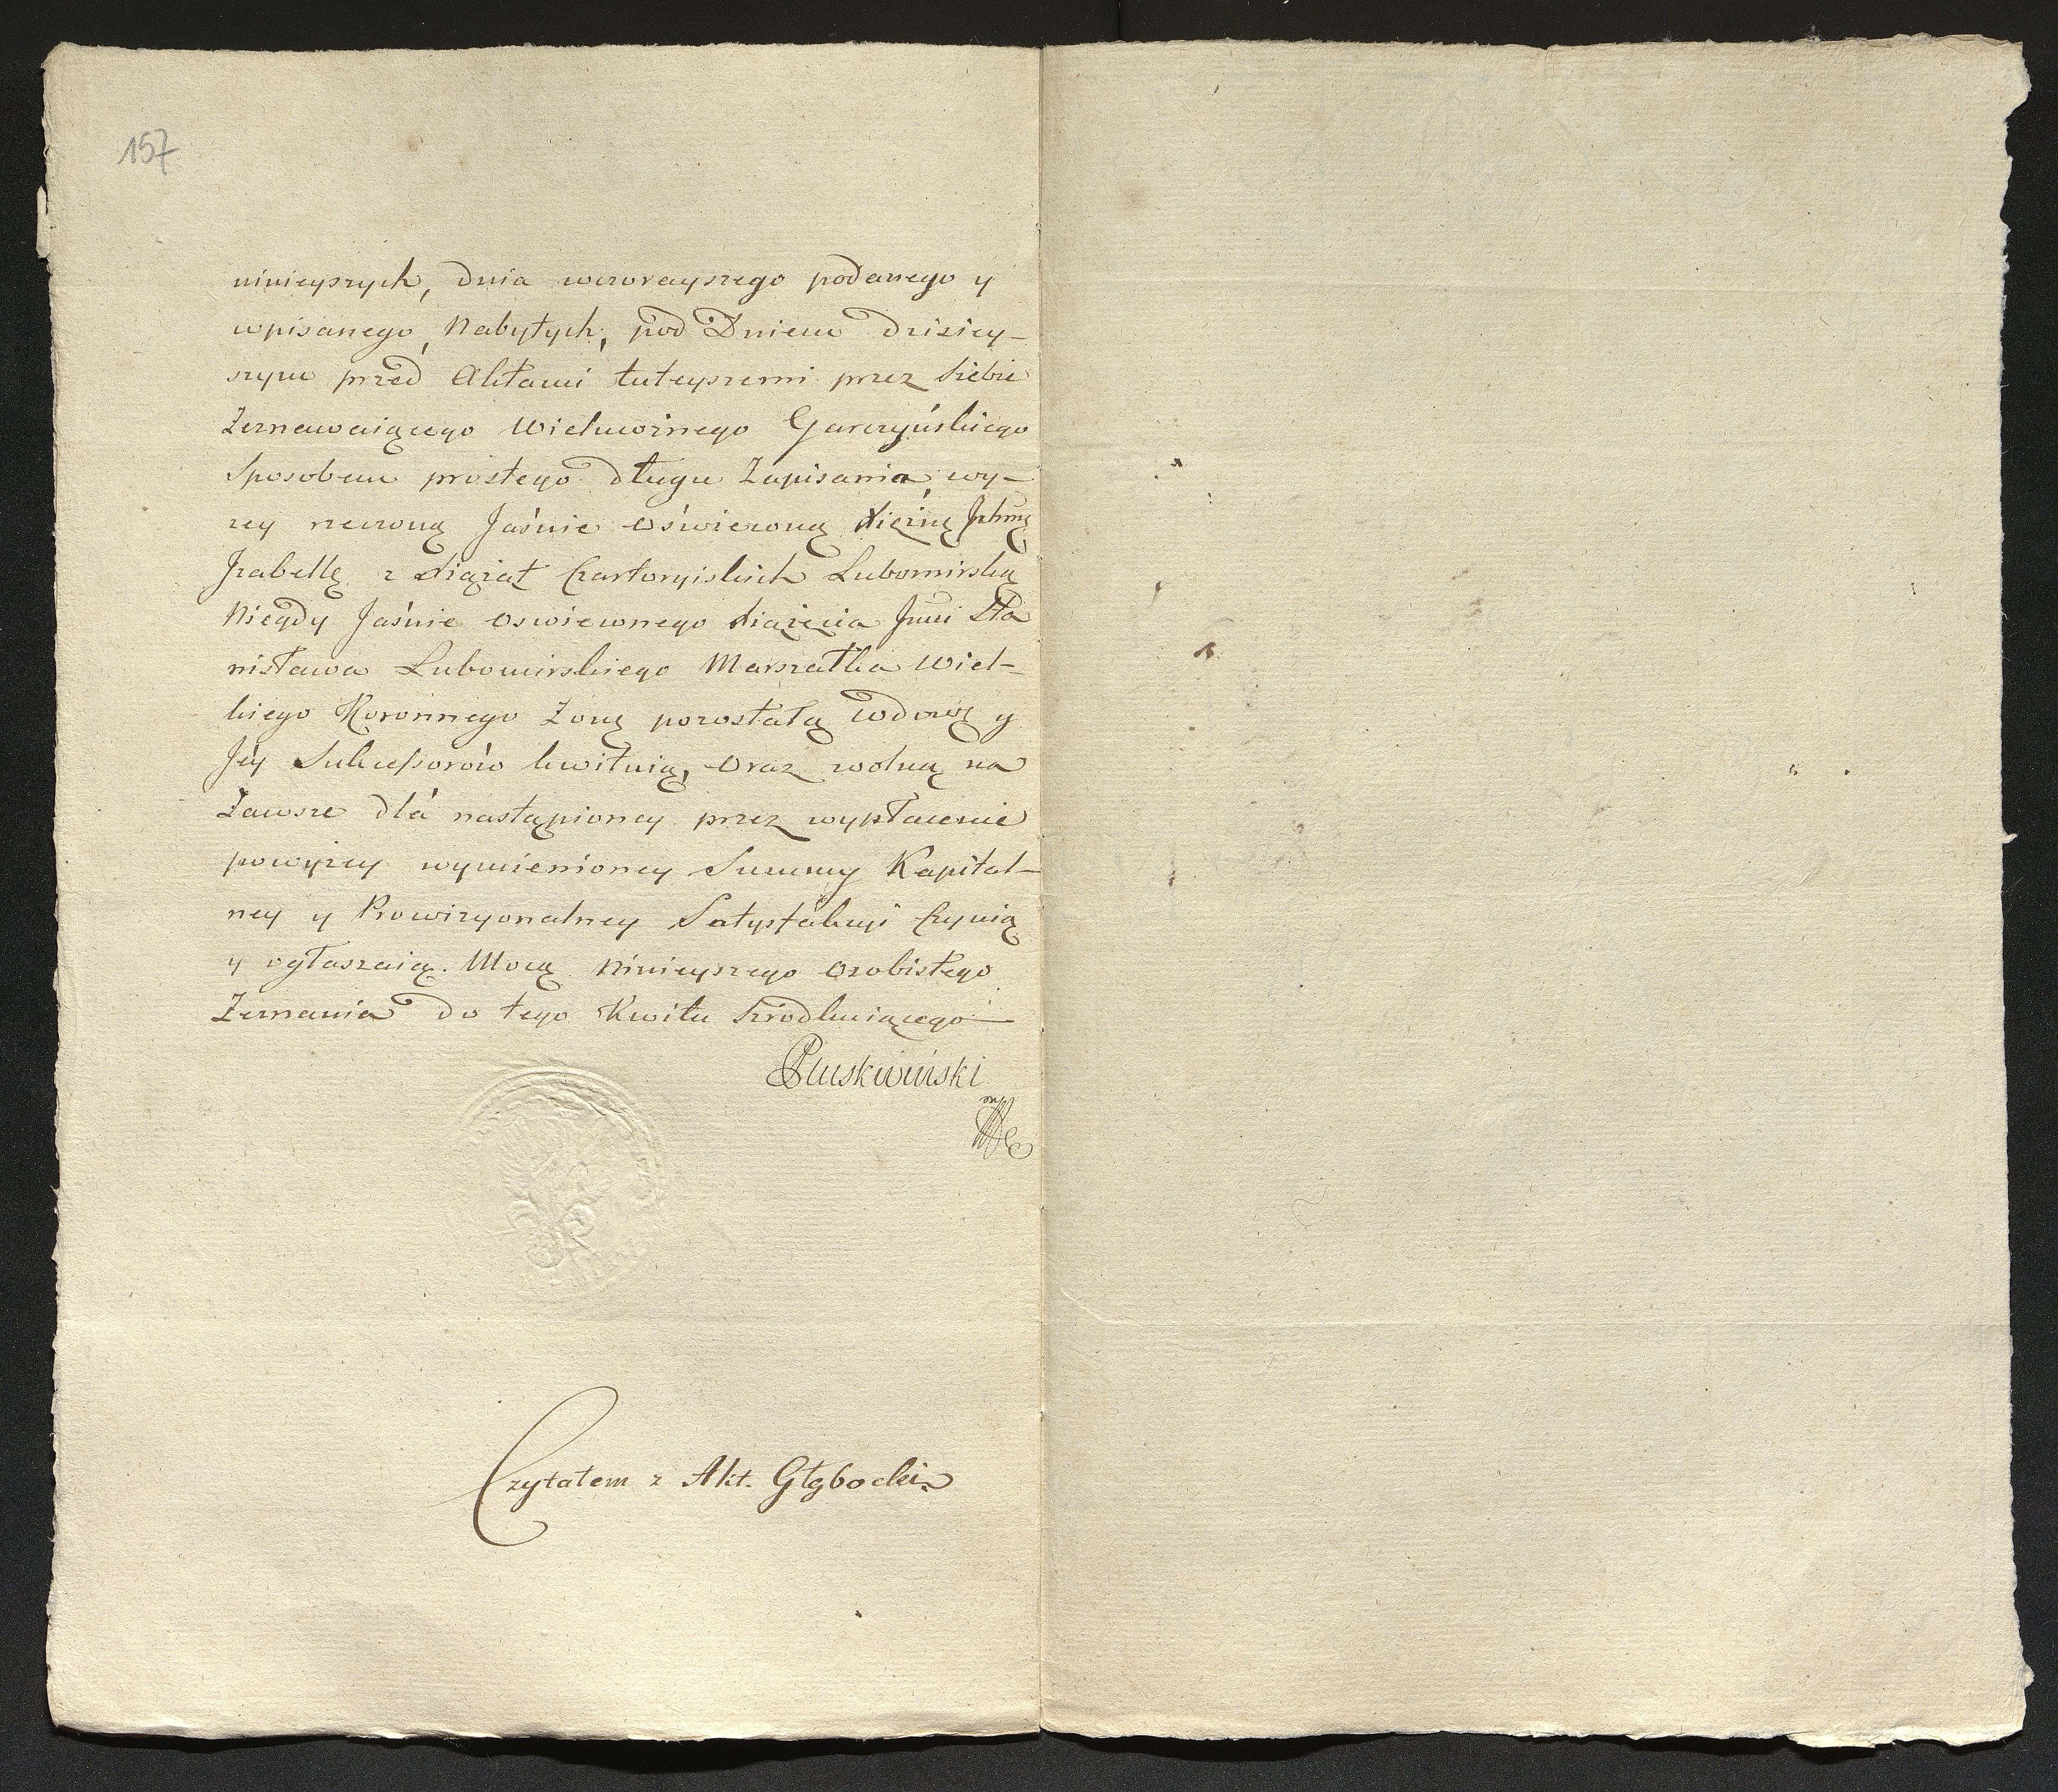 157
ninieyszych, dnia wczorayszego podanego y
wpisanego, Nabytych, pod Dniem dzisiey-
szym przed Aktami tuteyszemi przez Siebie
Zeznawaiącego Wielmożnego Garczyńskiego
Sposobem prostego długu Zapisania, wy-
zey rzeczoną Jaśnie Oświeconą Xięźnę Jchmę
Jzabellę z Xiąząt Czartoryiskich Lubomirską
Niegdy Jaśnie Oswieconego Xiązęcia Jmci Sta
nisława Lubomirskiego Marszałka Wiel-
kiego Koronnego Zonę pozostałą Wdowę y
Jéy Sukcessorów kwituią, Oraz wolną na
Zawsze dlá nastąpioney przez wypłacenie
powyzey wymienioney Summy Kapital-
ney y Prowizyonalney Satysfakcyi Czynią
y ogłaszaią. Mocą Ninieyszego Ozobistego
Zeznania do tego Kwitu Szrodkuiącego
mp
Czytałem z Akt. Głębocki